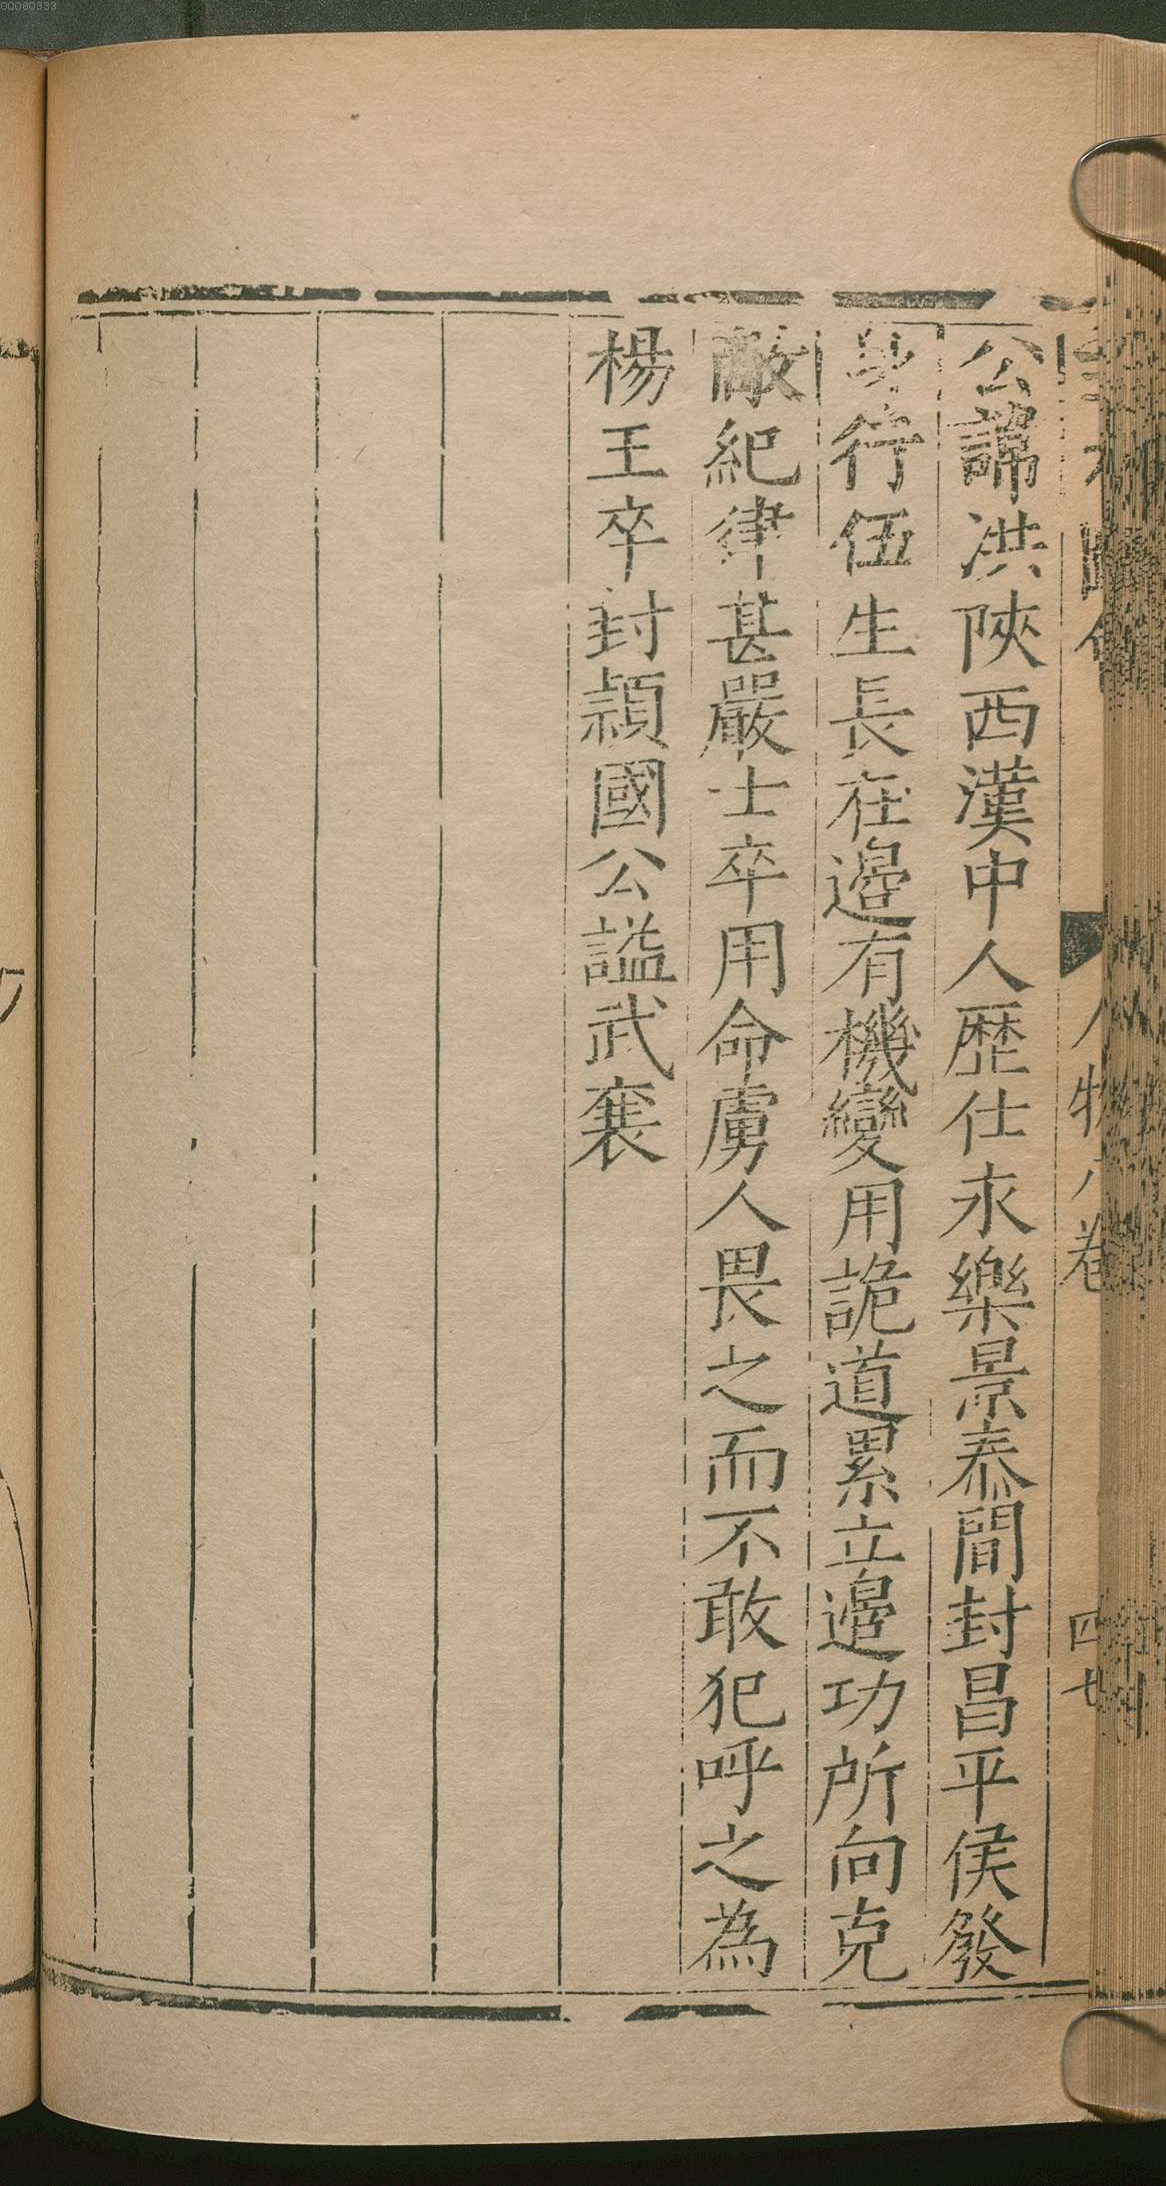 00060333
公諱洪陝西漢中人歷仕永樂景泰間封昌平侯發
身行伍生長在邊有機變用詭道累立邊功所向克
敵紀律甚嚴士卒用命虜人畏之而不敢犯呼之為
楊王卒封頴國公謚武襄
人物 卷
四七